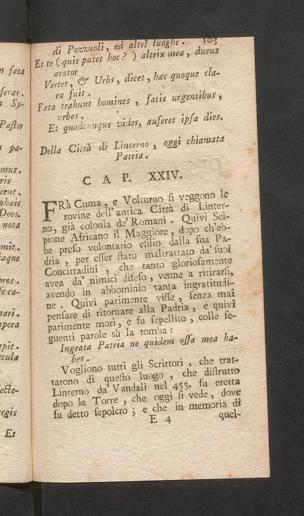 di Pozzuoli, ed altri luoghi. 103
Et te (quis putet hoc?) altrix mea, durus
arator
Vertet, & Urbs, dicet, hæc quoque cla-
ra fuit.
Fata trahunt homines, fatis urgentibus,
urbes.
Et quodcunque vides, auferet ipsa dies.
Della Città di Linterno, oggi chiamata
Patria.
C A P. XXIV.
FRà Cuma, e Volturno si veggono le
rovine dell'antica Città di Linter-
no, già colonia de' Romani. Quivi Sci-
pione Africano il Maggiore, dopo ch'eb-
be preso voluntario esilio dalla sua Pa-
dria, per esser stato maltrattato da' suoi
Concittadini, che tanto gloriosamente
avea da' nimici difeso, venne a ritirarsi,
avendo in abbominio tanta ingratitudi-
ne. Quivi parimente visse, senza mai
pensare di ritornare alla Padria, e quivi
parimente morì, e fu sepellito, colle se-
guenti parole sù la tomba:
Ingrata Patria ne quidem ossa mea ha-
bes.
Vogliono tutti gli Scrittori, che trat-
tarono di questo luogo, che distrutto
Linterno da' Vandali nel 455. fu eretta
dopo la Torre, che oggi si vede, dove
fu detto sepolcro; e che in memoria di
E 4 quel-
in fata
Sy-
Pastor
pa-
mus.
Deos.
nota
iaque
nari.
pora
apit.
Et